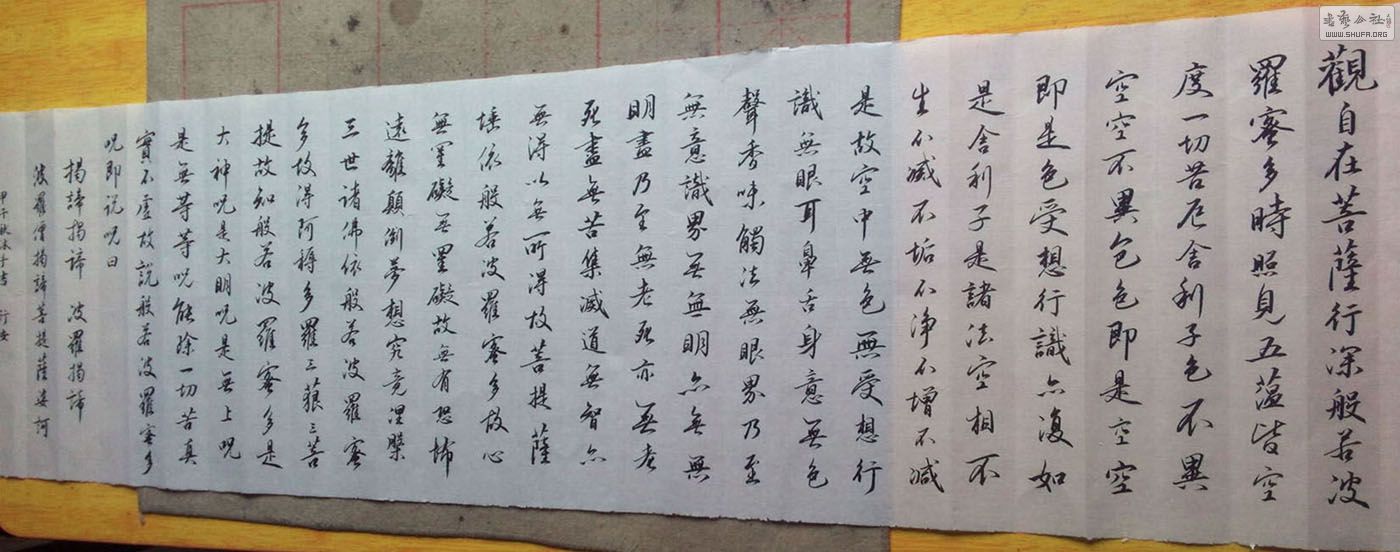 觀自在菩薩行深般若波
羅蜜多時照見五蕰皆空
度一切苦厄舍利子色不異
空空不異色色即是空空
即是色受想行識亦復如
是舍利子是諸法空相不
生不滅不垢不淨不增不減
是故空中無色無受想行
識無眼耳鼻舌身意無色
聲香味觸法無眼界乃至
無意識界無無明亦無無
明盡乃至無老死亦無老
死盡無苦集滅道無智亦
無得以無所得故菩提薩
埵依般若波羅蜜多故心
無罣礙無罣礙故無有恐怖
遠離顛倒夢想究竟涅槃
三世諸佛依般若波羅蜜
多故得阿耨多羅三藐三菩
提故知般若波羅蜜多是
大神呪是大明呪是無上呪
是無等等呪能除一切苦真
實不虛故說般若波羅蜜多
呪即說呪曰
揭諦揭諦 波羅揭諦
波羅僧揭諦菩提薩婆訶
甲午秋
书艺公社
WWW.SHUFA.ORG